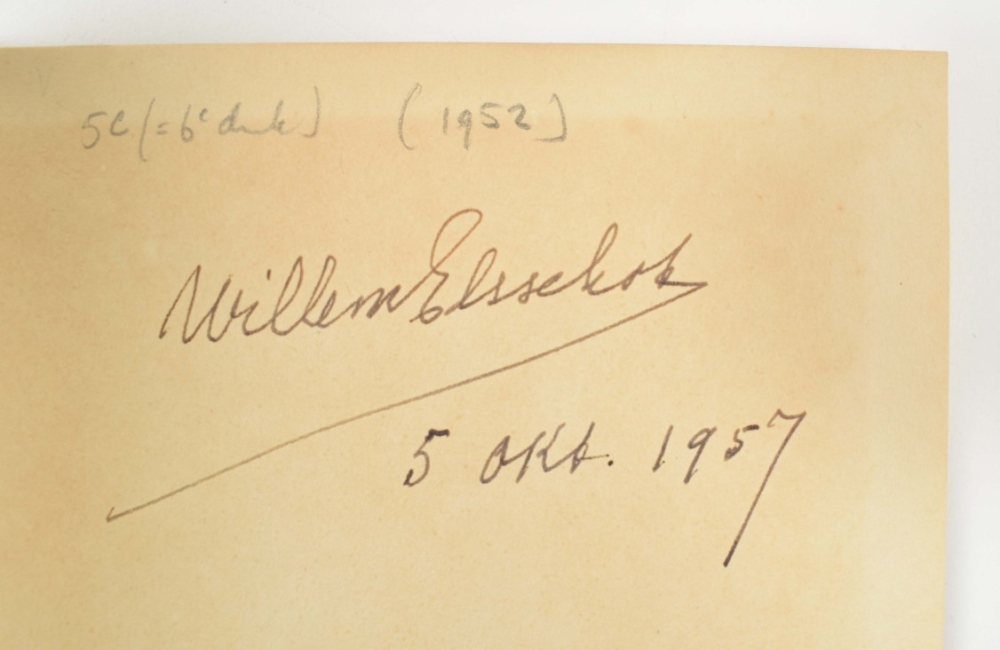 5e (= 6e druk) (1952)
Willem Elsschot
5 Okt. 1957